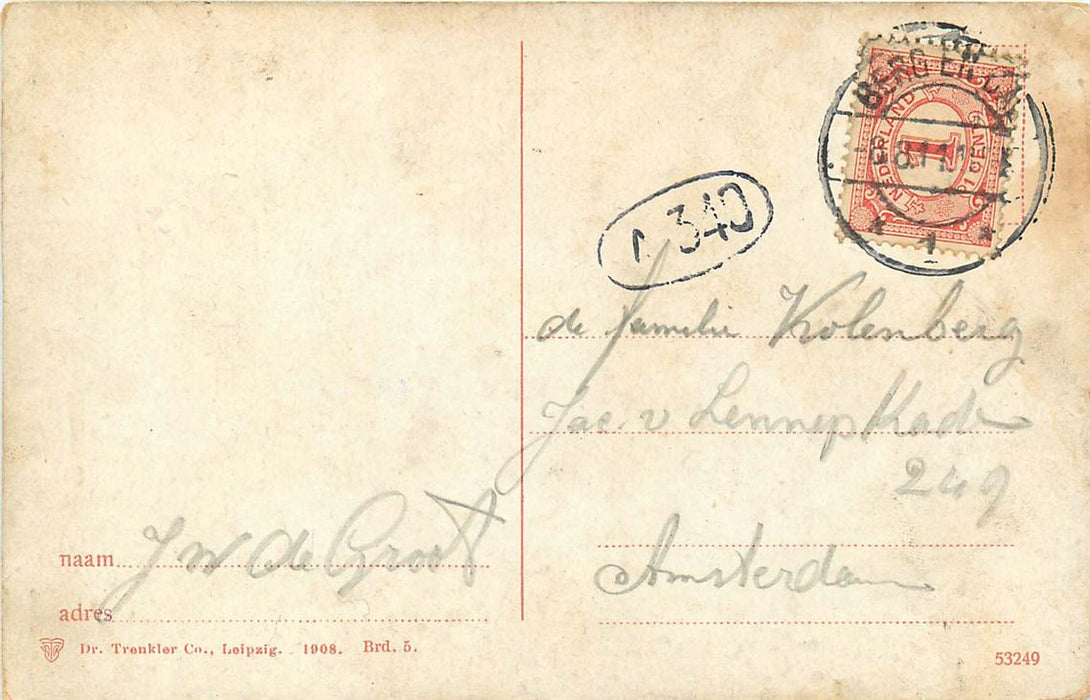 BERG EN D
NEDERLAND
1
CENT
8.11
1
340
de familie Kolenberg
Jac. v Lennep Kade
249
Amsterdam
naam J W de Groot
adres
Dr. Trenkler Co., Leipzig. 1908. Brd. 5.
53249